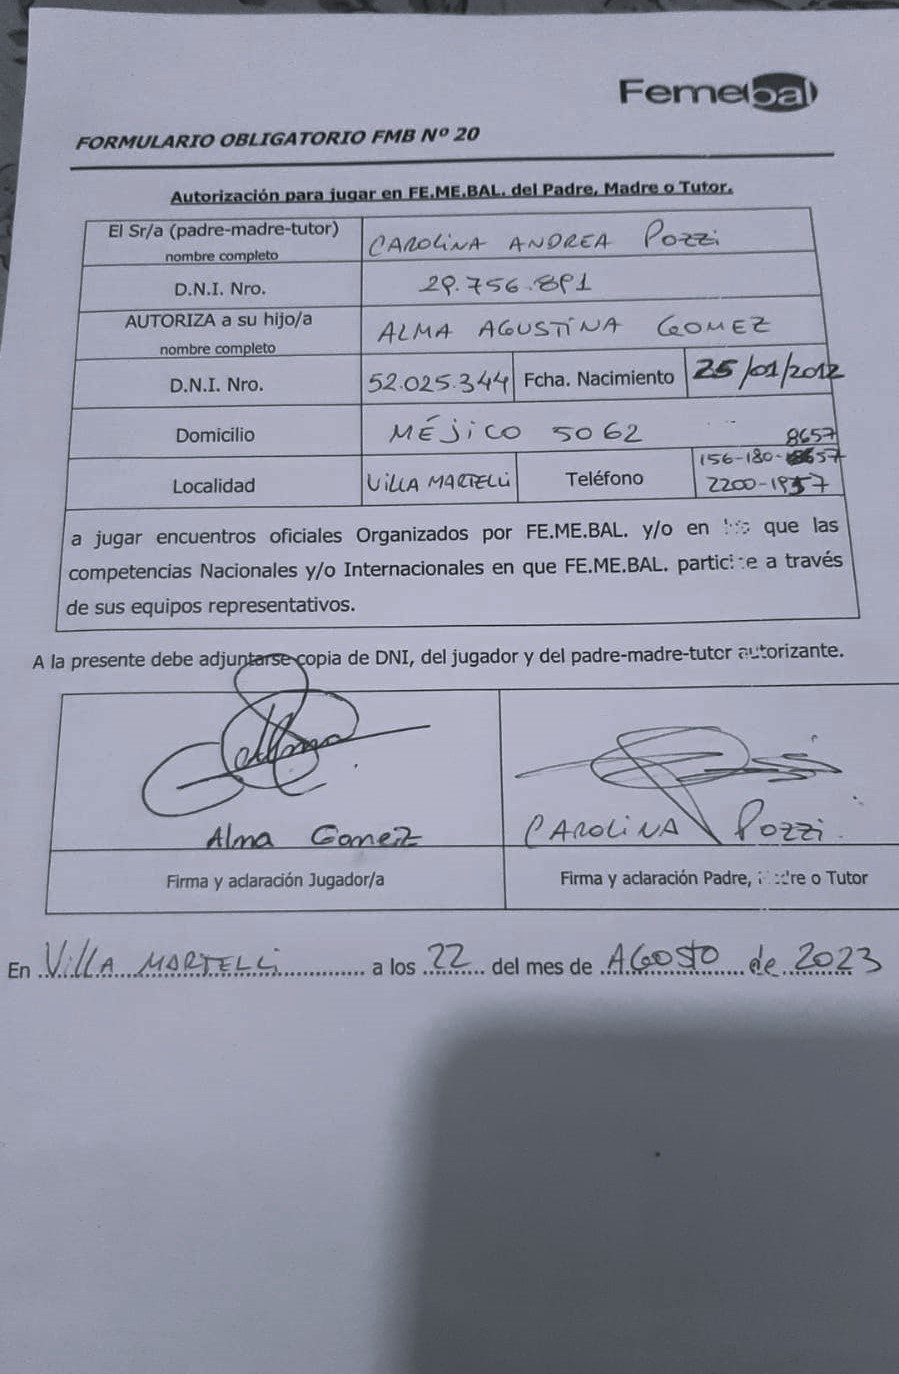 Femebal
FORMULARIO OBLIGATORIO FMB Nº 20
Autorización para jugar en FE.ME.BAL. del Padre, Madre o Tutor.
El Sr/a (padre-madre-tutor) nombre completo CAROLINA ANDREA POZZI
D.N.I. Nro. 29.756.891
AUTORIZA a su hijo/a nombre completo ALMA AGUSTINA GOMEZ
D.N.I. Nro. 52.025.344 Fcha. Nacimiento 25/01/2012
Domicilio MÉJICO 5062
8657
Localidad VILLA MARTELLI Teléfono 156-180-
2200-1957
a jugar encuentros oficiales Organizados por FE.ME.BAL. y/o en que las
competencias Nacionales y/o Internacionales en que FE.ME.BAL. participe a través
de sus equipos representativos.
A la presente debe adjuntarse copia de DNI, del jugador y del padre-madre-tutor autorizante.
Alma
Alma Gomez CAROLINA POZZI
Firma y aclaración Jugador/a Firma y aclaración Padre, Madre o Tutor
En VILLA MARTELLI a los 22 del mes de AGOSTO de 2023